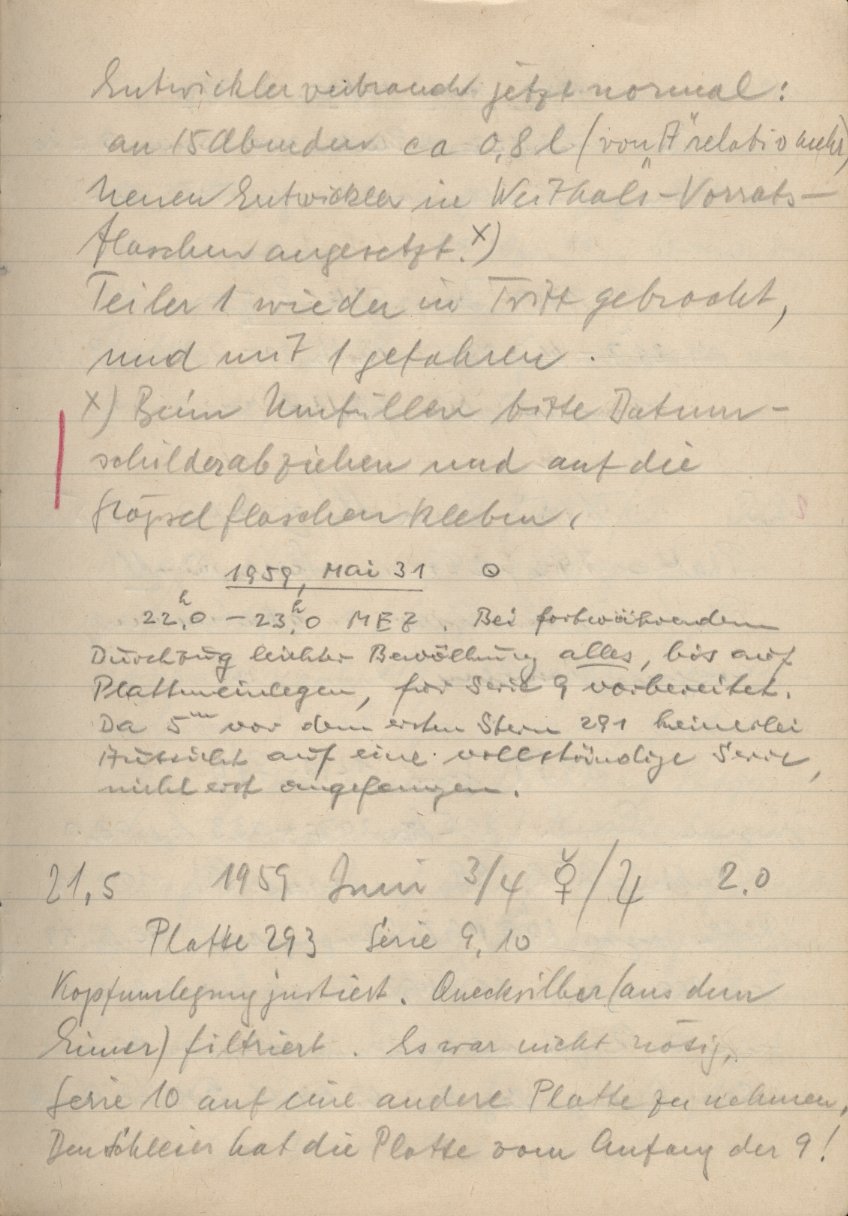 Entwicklerverbrauch jetzt normal:
an 15 Abenden ca 0,8 l (von "A" relativ mehr)
Neuen Entwickler in Weithals-Vorrats-
flaschen angesetzt. x)
Teiler 1 wieder in Tritt gebracht,
und mit 1 gefahren.
x) Beim Umfüllen bitte Datum-
schilder abziehen und auf die
Stöpselflaschen kleben.
1959, Mai 31 ☉
22,ʰ0 – 23,ʰ0 MEZ. Bei fortwährendem
Durchzug leichter Bewölkung alles, bis auf
Platteneinlegen, für Serie 9 vorbereitet.
Da 5ᵐ vor dem ersten Stern 291 keinerlei
Aussicht auf eine vollständige Serie,
nicht erst angefangen.
21,5 1959 Juni 3/4 ☿/♃ 2.0
Platte 293 Serie 9, 10
Kopfumlegung justiert. Quecksilber (aus dem
Eimer) filtriert. Es war nicht nötig,
Serie 10 auf eine andere Platte zu nehmen.
Den Schleier hat die Platte vom Anfang der 9!